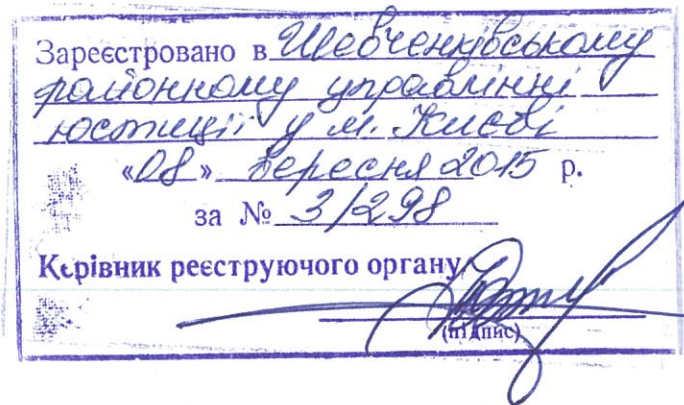 Зареєстровано в Шевченківському
районному управлінні
юстиції у м. Києві
«08» вересня 2015 р.
за № 3/298
Керівник реєструючого органу
(підпис)